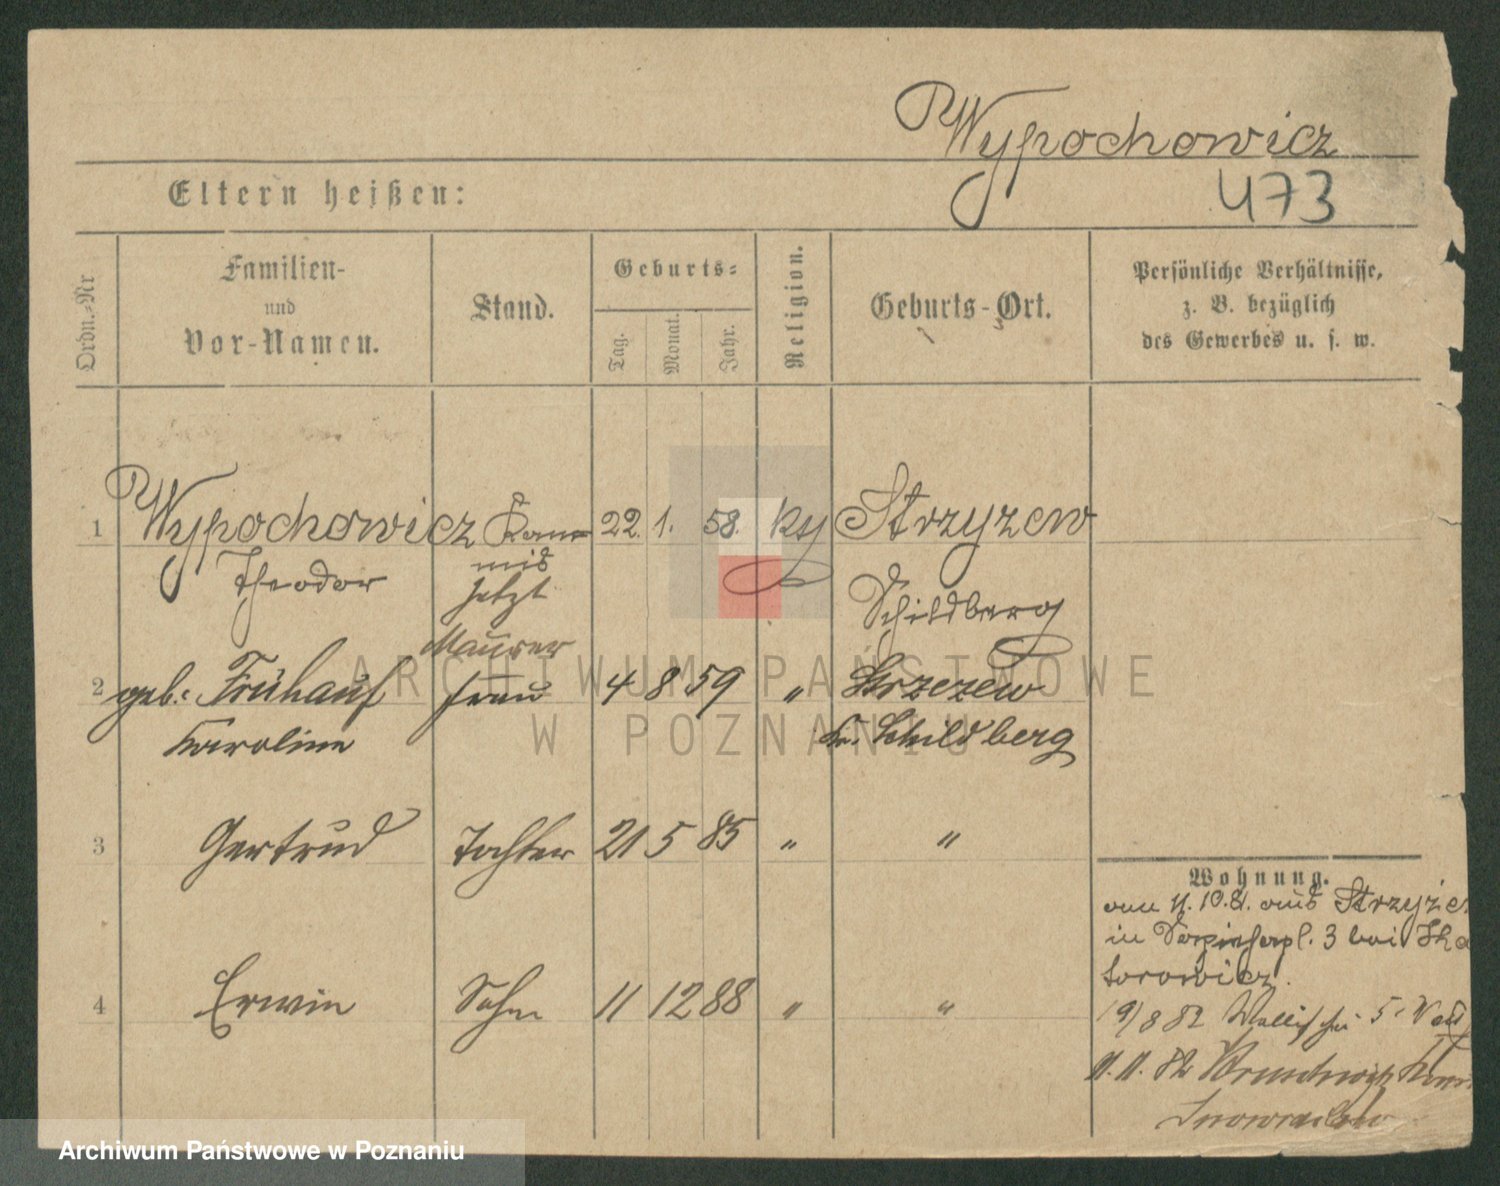 Wypochowicz
Eltern heißen:
473
Ordn.-Nr
Familien-
und
Vor-Namen.
Stand.
Geburts-
Tag.
Monat.
Jahr.
Religion.
Geburts-Ort.
Persönliche Verhältnisse,
z. B. bezüglich
des Gewerbes u. s. w.
1 Wypochowicz Kom- 22. 1. 58. Strzyzew
Theodor mis
jetzt Schildberg
Maurer
2 geb: Frühauf Frau 4 8 59 " Strzezew
Karoline Kr. Schildberg
3 Gertrud Tochter 21 5 85 " "
4 Erwin Sohn 11 12 88 " "
Wohnung.
11. 10. 81. aus
in 3 bei
torowicz.
19/8 82 Wallischei 5
11. 11. 82
Inowraclaw
ARCHIWUM PAŃSTWOWE
W POZNANIU
Archiwum Państwowe w Poznaniu